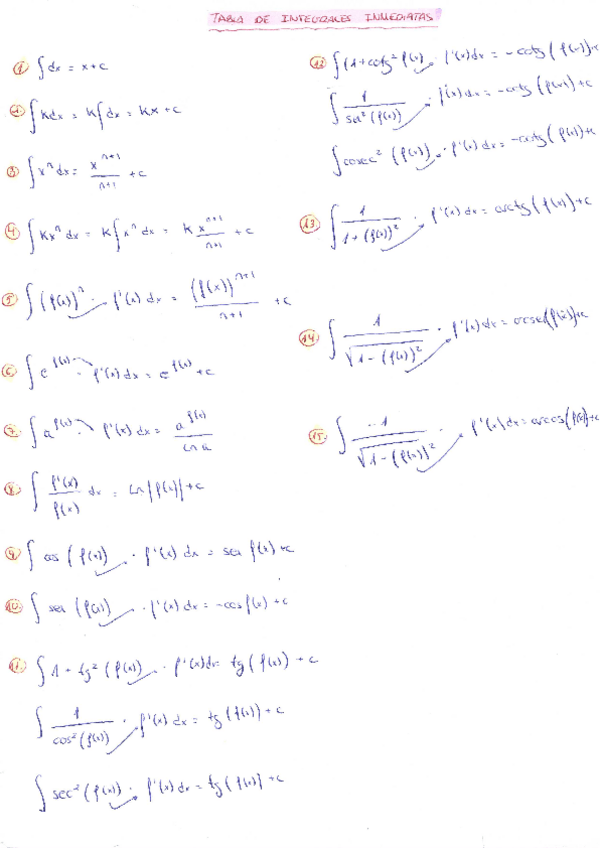 TABLA DE INTEGRALES INMEDIATAS
1. ∫ dx = x + c
2. ∫ k dx = k ∫ dx = kx + c
3. ∫ xⁿ dx = xⁿ⁺¹/(n+1) + c
4. ∫ kxⁿ dx = k ∫ xⁿ dx = k xⁿ⁺¹/(n+1) + c
5. ∫ (f(x))ⁿ · f'(x) dx = (f(x))ⁿ⁺¹/(n+1) + c
6. ∫ e^f(x) · f'(x) dx = e^f(x) + c
7. ∫ a^f(x) · f'(x) dx = a^f(x)/ln a
8. ∫ f'(x)/f(x) dx = ln |f(x)| + c
9. ∫ cos (f(x)) · f'(x) dx = sen f(x) + c
10. ∫ sen (f(x)) · f'(x) dx = -cos f(x) + c
11. ∫ 1 + tg² (f(x)) · f'(x) dx = tg (f(x)) + c
∫ 1/cos² (f(x)) · f'(x) dx = tg (f(x)) + c
∫ sec² (f(x)) · f'(x) dx = tg (f(x)) + c
12. ∫ (1 + cotg² f(x) · f'(x) dx = -cotg (f(x)) + c
∫ 1/sen² (f(x)) · f'(x) dx = -cotg (f(x)) + c
∫ cosec² (f(x)) · f'(x) dx = -cotg (f(x)) + c
13. ∫ 1/(1 + (f(x))²) · f'(x) dx = arctg (f(x)) + c
14. ∫ 1/√(1 - (f(x))²) · f'(x) dx = arcsen (f(x)) + c
15. ∫ -1/√(1 - (f(x))²) · f'(x) dx = arccos (f(x)) + c